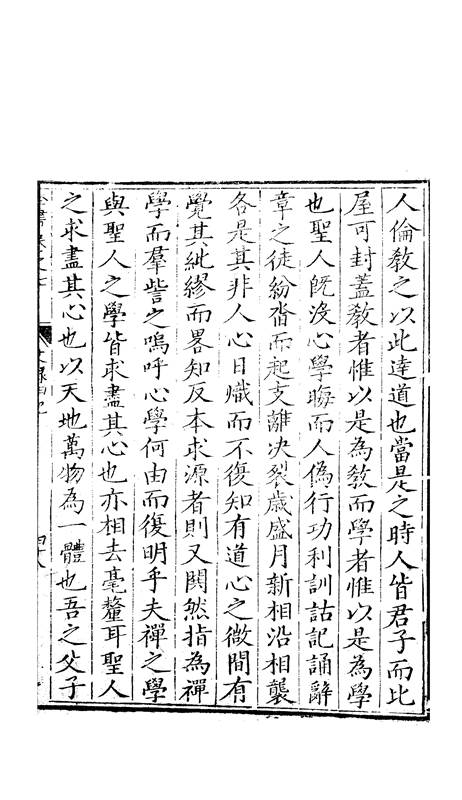 人倫敎之以此達道也當是之時人皆君子而比
屋可封蓋敎者惟以是為敎而學者惟以是為學
也聖人旣沒心學晦而人偽行功利訓詁記誦辭
章之徒紛沓而起支離决裂歲盛月新相沿相襲
各是其非人心日熾而不復知有道心之微間有
覺其紕繆而畧知反本求源者則又閧然指為禪
學而羣訾之嗚呼心學何由而復明乎夫禪之學
與聖人之學皆求盡其心也亦相去毫釐耳聖人
之求盡其心也以天地萬物為一體也吾之父子